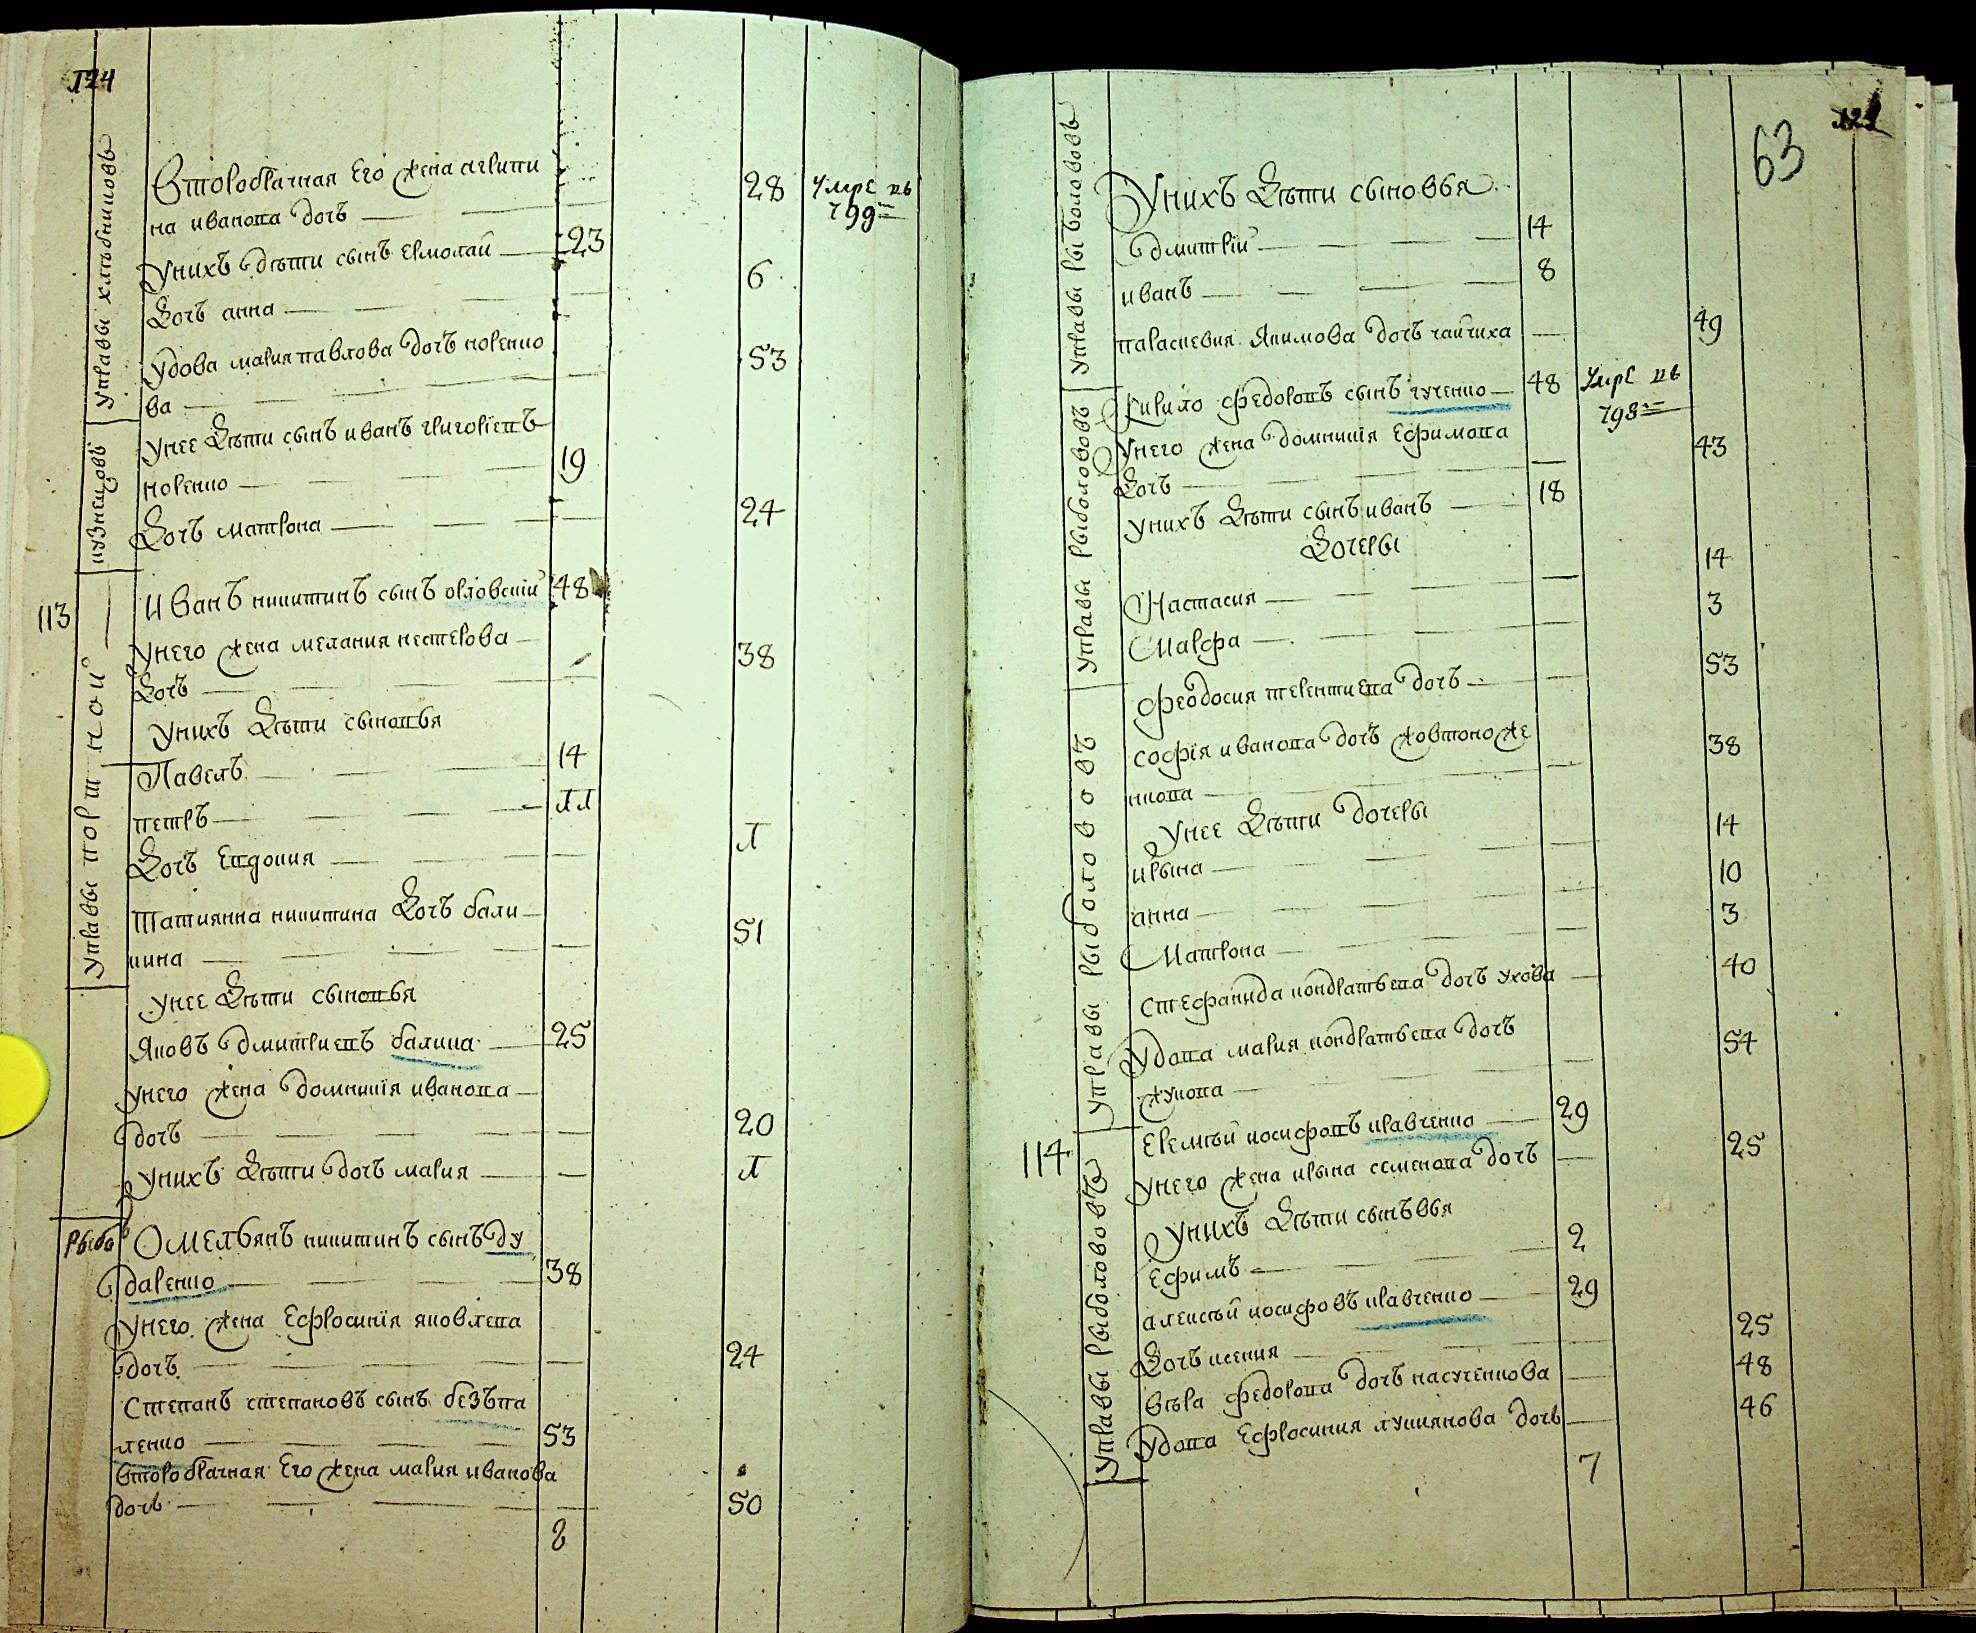 124
управы хлѣбниковъ
Второбрачная его жена агрипи
28
умре въ
на иванова дочь
799
унихъ дѣти сынъ ермолай
23
Дочь анна
6
удова мария павлова дочь норенко
53
ва
кузнецовъ
унее дѣти сынъ иванъ григориевъ
норенко
19
Дочь матрона
24
113
управы портной
Иванъ никитинъ сынъ орловский
48
унего жена мелания нестерова
38
Дочь
унихъ дѣти сыновья
Павелъ
14
петръ
11
Дочь Евдокия
1
Татиянна никитина Дочь бали
51
кина
унее дѣти сыновья
Яковъ дмитриевъ балика
25
унего жена домникия иванова
дочь
20
унихъ дѣти дочь мария
1
Рыбо
Омельянъ никитинъ сынъ ду
даренко
38
унего жена Ефросиния яковлева
дочь
24
Степанъ степановъ сынъ безъпа
ленко
53
второбрачная его жена мария иванова
дочь
50
8
63
управы рыболововъ
Унихъ Дѣти сыновья
дмитрій
14
иванъ
8
параскевия Якимова дочь чайчиха
49
управы рыболововъ
Кирило федоровъ сынъ гученко
48
умре въ
798
унего жена домникия Ефимова
43
Дочь
унихъ дѣти сынъ иванъ
18
Дочеры
Настасия
14
Марфа
3
феодосия терентиева дочь
53
управы рыболововъ
софія иванова дочь жовтоноже
38
нкова
унее Дѣти дочеры
ирына
14
анна
10
Матрона
3
стефанида кондратьева дочь ухова
40
удова мария кондратьева дочь
54
жукова
114
управы рыболововъ
Еремѣй иосифовъ кравченко
29
унего жена ирына семенова дочь
25
унихъ дѣти сынъвья
Ефимъ
2
алексѣй иосифовъ кравченко
29
Дочь ксения
25
вѣра федорова дочь касученкова
48
удова Ефросиния лукиянова дочь
46
7